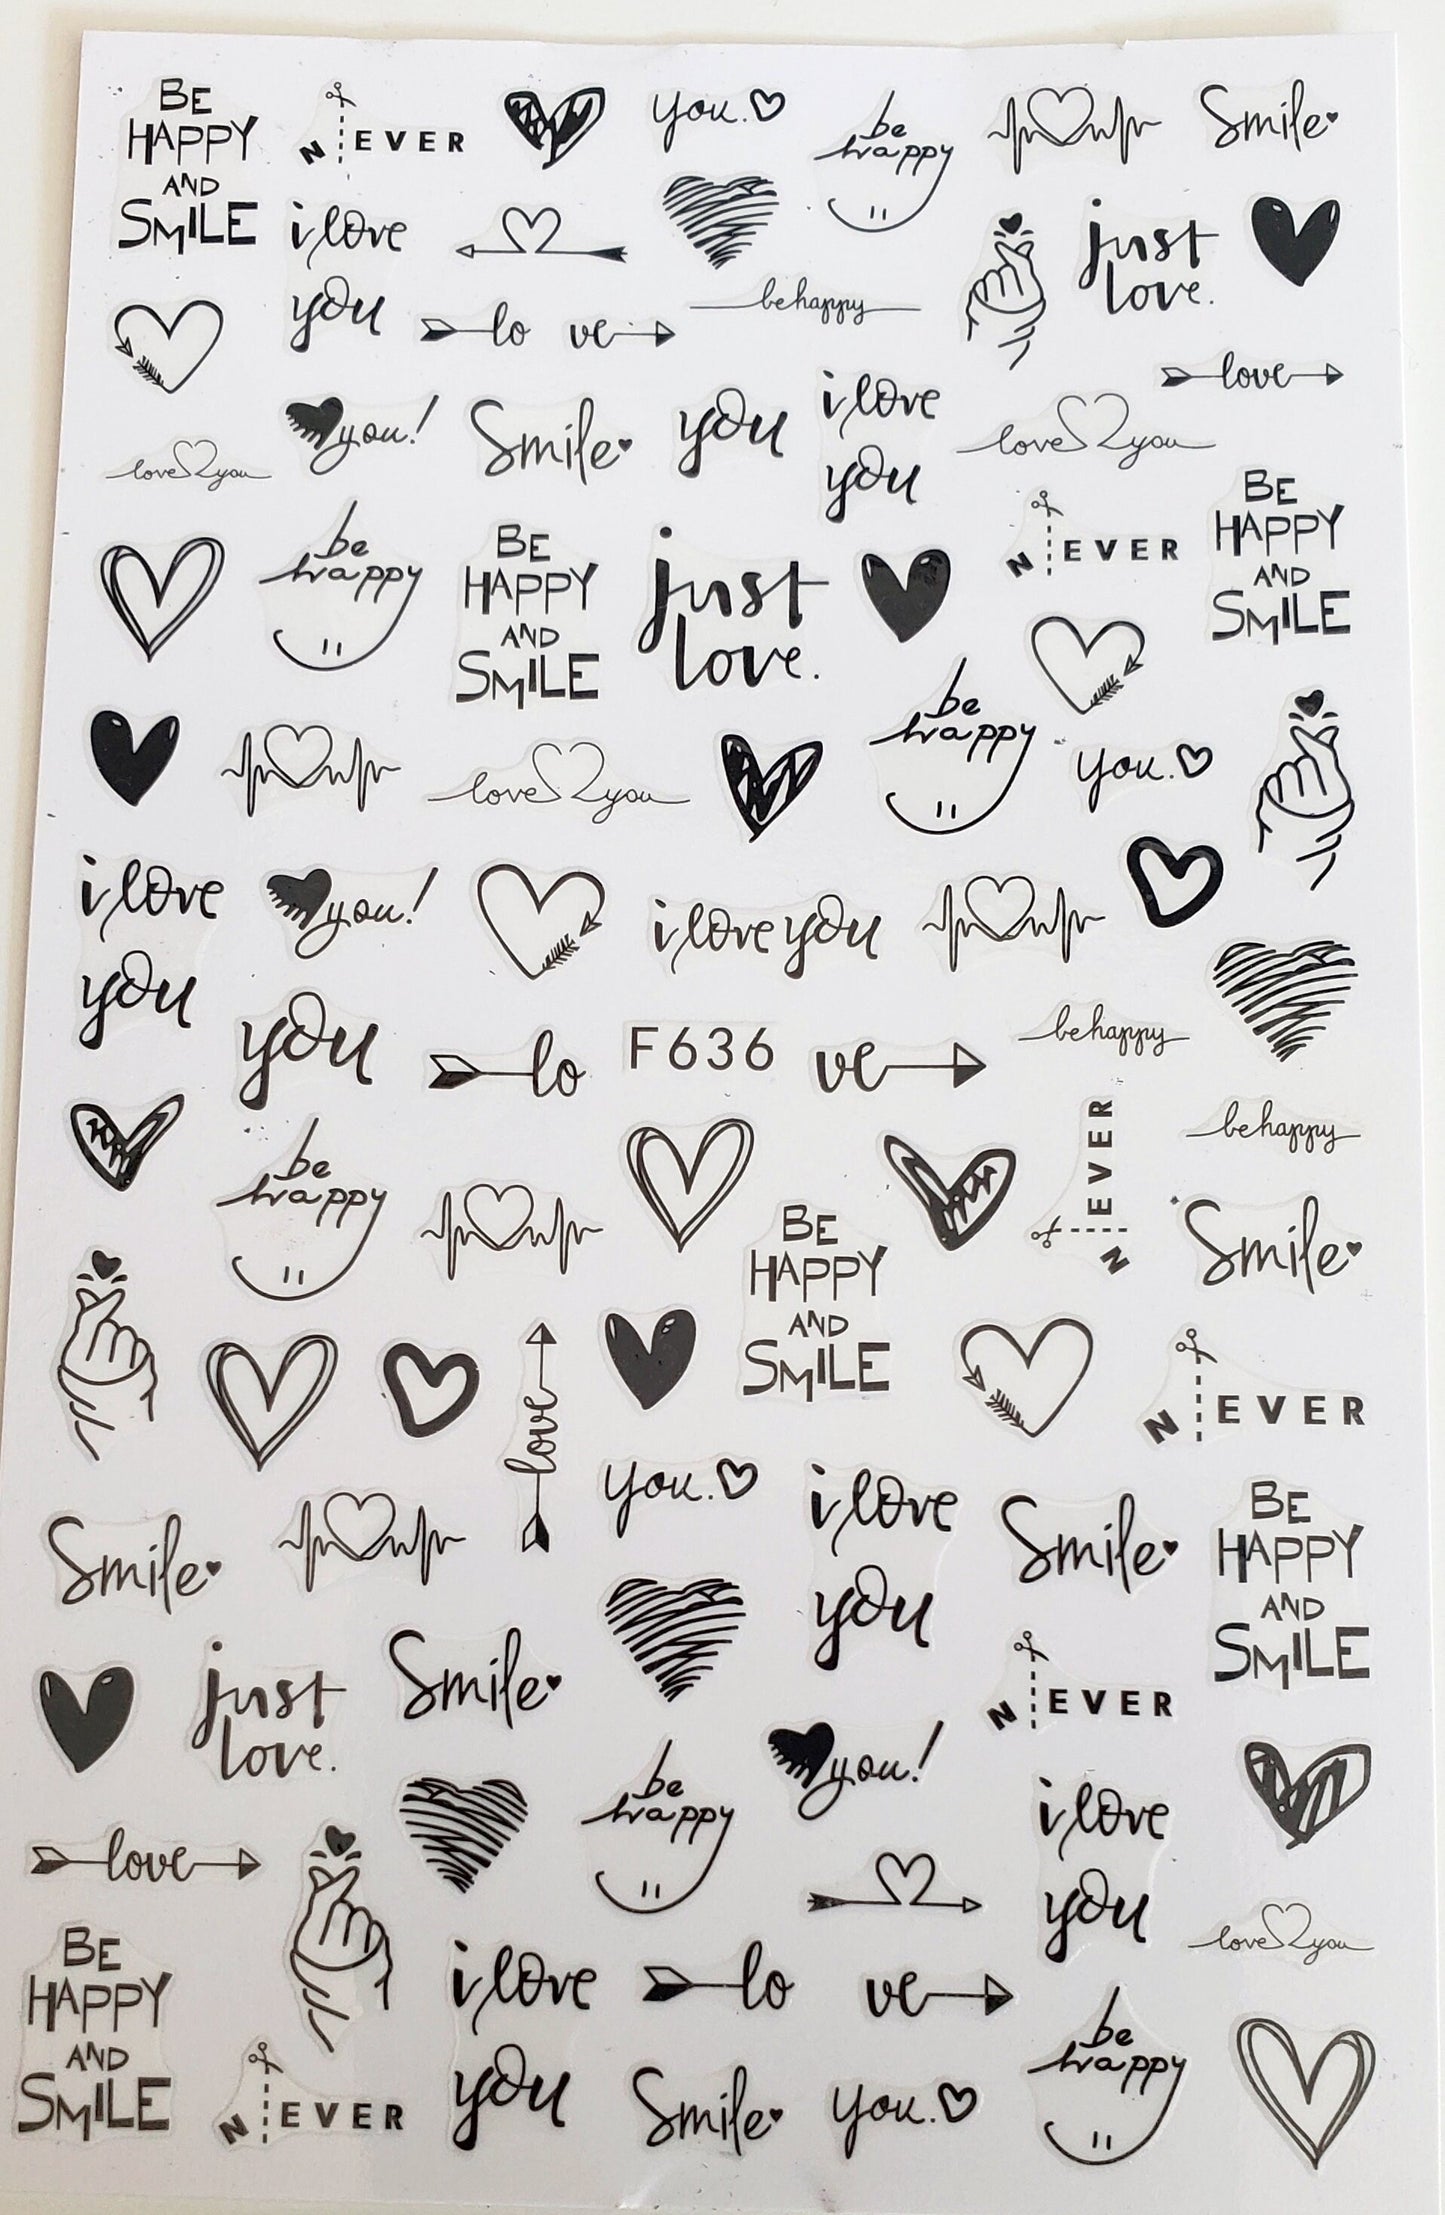 BE
HAPPY
AND
SMILE
N EVER
you.
be
happy
Smile
i love
you
just
love.
be happy
lo ve
love
you!
Smile
you
i love
you
love you
love you
BE
HAPPY
AND
SMILE
N EVER
be
happy
BE
HAPPY
AND
SMILE
just
love.
be
happy
you.
love you
i love
you
you!
i love you
you
lo
F636
ve
be happy
be happy
N EVER
be
happy
Smile
BE
HAPPY
AND
SMILE
love
N EVER
you.
i love
you
Smile
BE
HAPPY
AND
SMILE
Smile
just
love.
Smile
N EVER
you!
be
happy
i love
you
love
love you
BE
HAPPY
AND
SMILE
i love
you
lo ve
be
happy
N EVER
Smile
you.